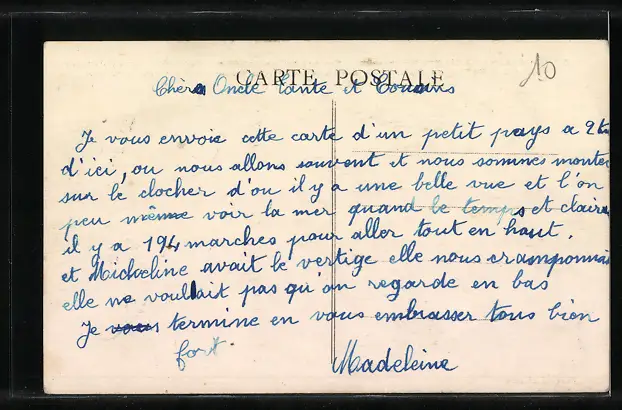 CARTE POSTALE
10
Chèrs Oncle Tante et Cousins
Je vous envoie cette carte d'un petit pays a 2
d'ici, ou nous allons souvent et nous sommes montes
sur le clocher d'ou il y a une belle vue et l'on
peu même voir la mer quand le temps et claire
il y a 194 marches pour aller tout en haut.
et Micheline avait le vertige elle nous cramponnais
elle ne voullait pas qu'on regarde en bas
Je vous termine en vous embrasser tous bien
fort.
Madeleine